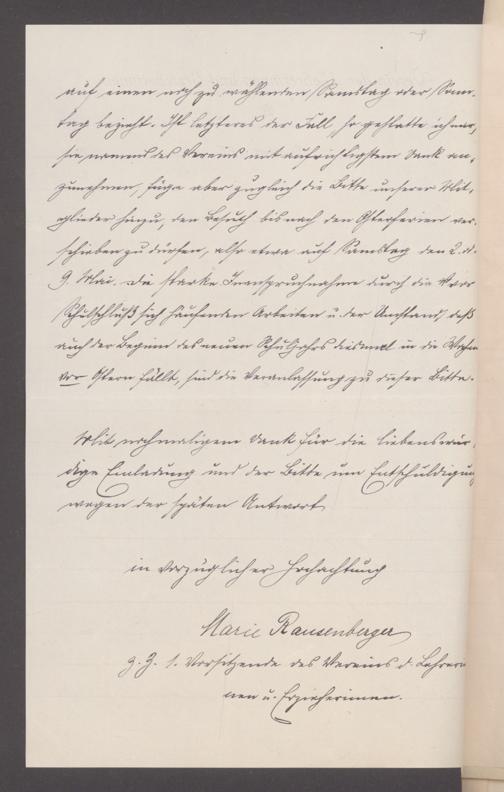 auf einen noch zu wählenden Samstag oder Sonn-
tag bezieht. Ist letzteres der Fall, so gestatte ich mir,
sie namens des Vereins mit aufrichtigstem Dank an-
zunehmen, füge aber zugleich die Bitte unserer Mit-
glieder hinzu, den Besuch bis nach den Osterferien ver-
schieben zu dürfen, also etwa auf Samstag den 2. od.
9. Mai. Die starke Inanspruchnahme durch die vor
Schulschluß sich häufenden Arbeiten u. der Umstand, daß
auch der Beginn des neuen Schuljahrs diesmal in die Wochen
vor Ostern fällt, sind die Veranlassung zu dieser Bitte.
Mit nochmaligem Dank für die liebenswür-
dige Einladung und der Bitte um Entschuldigung
wegen der späten Antwort
in vorzüglicher Hochachtung
Marie Rausenberger
z. Z. 1. Vorsitzende des Vereins d. Lehrerin-
nen u. Erzieherinnen.